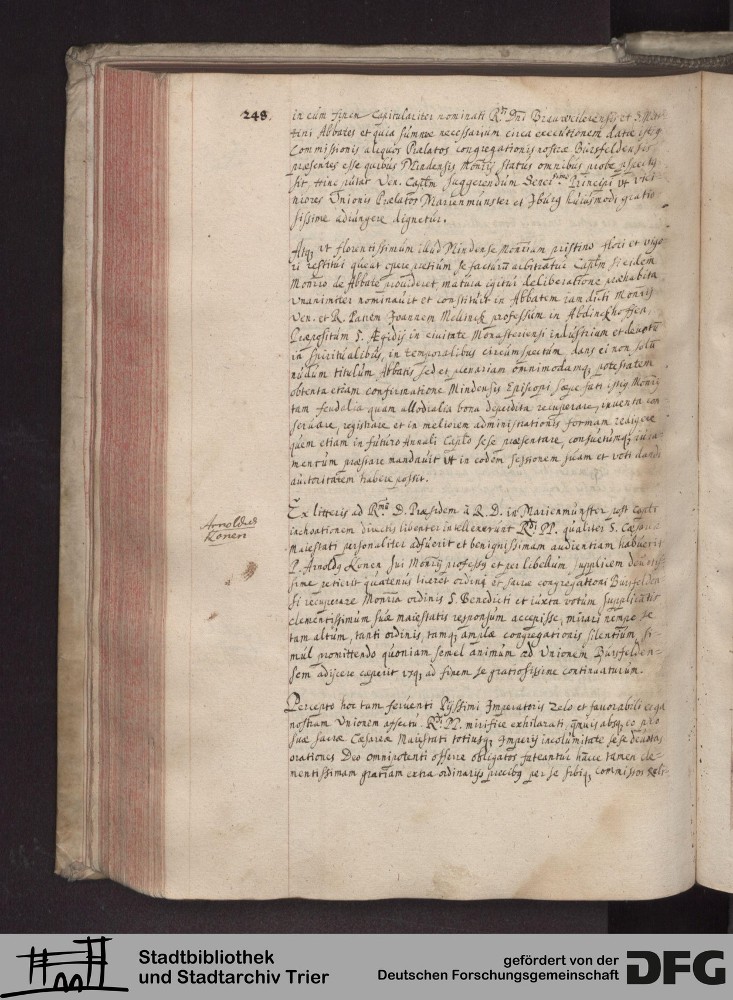 248.
in eum finem Capitulariter nominati R.di Dni Brauweilerensis et
tini Abbates et quia summe necessarium circa executionem datae istig
Commissionis aliquos Praelatos congregationis nostrae Bursfeldensis
praesentes esse quibus Mindensis Monrij status omnibus probe
sit, hinc putat Ven. Captm suggerendum Principi ut vici
niores Unionis Praelatos Marienmunster et Iburg huiusmodi gratio
sissime adiungere dignetur.
Atq, ut florentissimum illud Mindense Monriam pristino flori et vigo
ri restitui queat opere pretium se facturu arbitratur Captm si eidem
Monrio de Abbate provideret, matura igitur deliberatione praehabita
unanimiter nominavit et constituit in Abbatem iam dicti Monrij
Ven. et R. Patrem Joannem Meltinck professum in Abdinckhoffen,
Praepositum S. Aegidij in civitate Monasteriensi industrium et devotu
in spiritualibus, in temporalibus circumspectum, dans ei non solu
nudum titulum Abbatis sed et plenariam omnimodamq, potestatem
obtenta etiam confirmatione Mindensis Episcopi saepe fati istig Monrij
tam feudalia quam allodialia bona deperdita recuperare, inventa con-
servare, registrare et in meliorem administrationis formam redigere
quem etiam in futuro Annali Caplo sese praesentare, consuetumq, iura-
mentum praestare mandavit ut in eodem sessionem suam et voti dandi
auctoritatem habere possit.
Arnoldus
Konen
Ex litteris ad Rmu D. Praesidem a R. D. in Marienmunster post Capli
inchoationem directis libenter intellexerunt R.di PP. qualiter S. Caesareae
Maiestati personaliter adfuerit et benignissimam audientiam habuerit
P. Arnoldg Konen sui Monrij professg et per libellum supplicem
sime petierit quatenus liceret ordini et sacrae congregationi Bursfelden
si recuperare Monria ordinis S. Benedicti et iuxta votum supplicatis
clementissimum suae maiestatis responsum accepisse, mirari nempe se
tam altum, tanti ordinis, tamq, amplae congregationis silentium, si-
mul promittendo quoniam semel animum ad Unionem Bursfelden-
sem adijcere caeperit usq, ad finem se gratiosissime continuaturum.
Percepto hoc tam ferventi Pijssimi Imperatoris zelo et favorabili erga
nostram Unionem affectu R.di PP. mirifice exhilarati, quiuis absq, eo pro
suae sacrae Caesareae Maiestati totiusq, Imperij incolumitate sese devotas
orationes Deo omnipotenti offerre obligatos fateantur hacce tamen cle-
mentissimam gratiam extra ordinarijs precibg per se sibiq, commissos
Stadtbibliothek
und Stadtarchiv Trier
gefördert von der
Deutschen Forschungsgemeinschaft
DFG